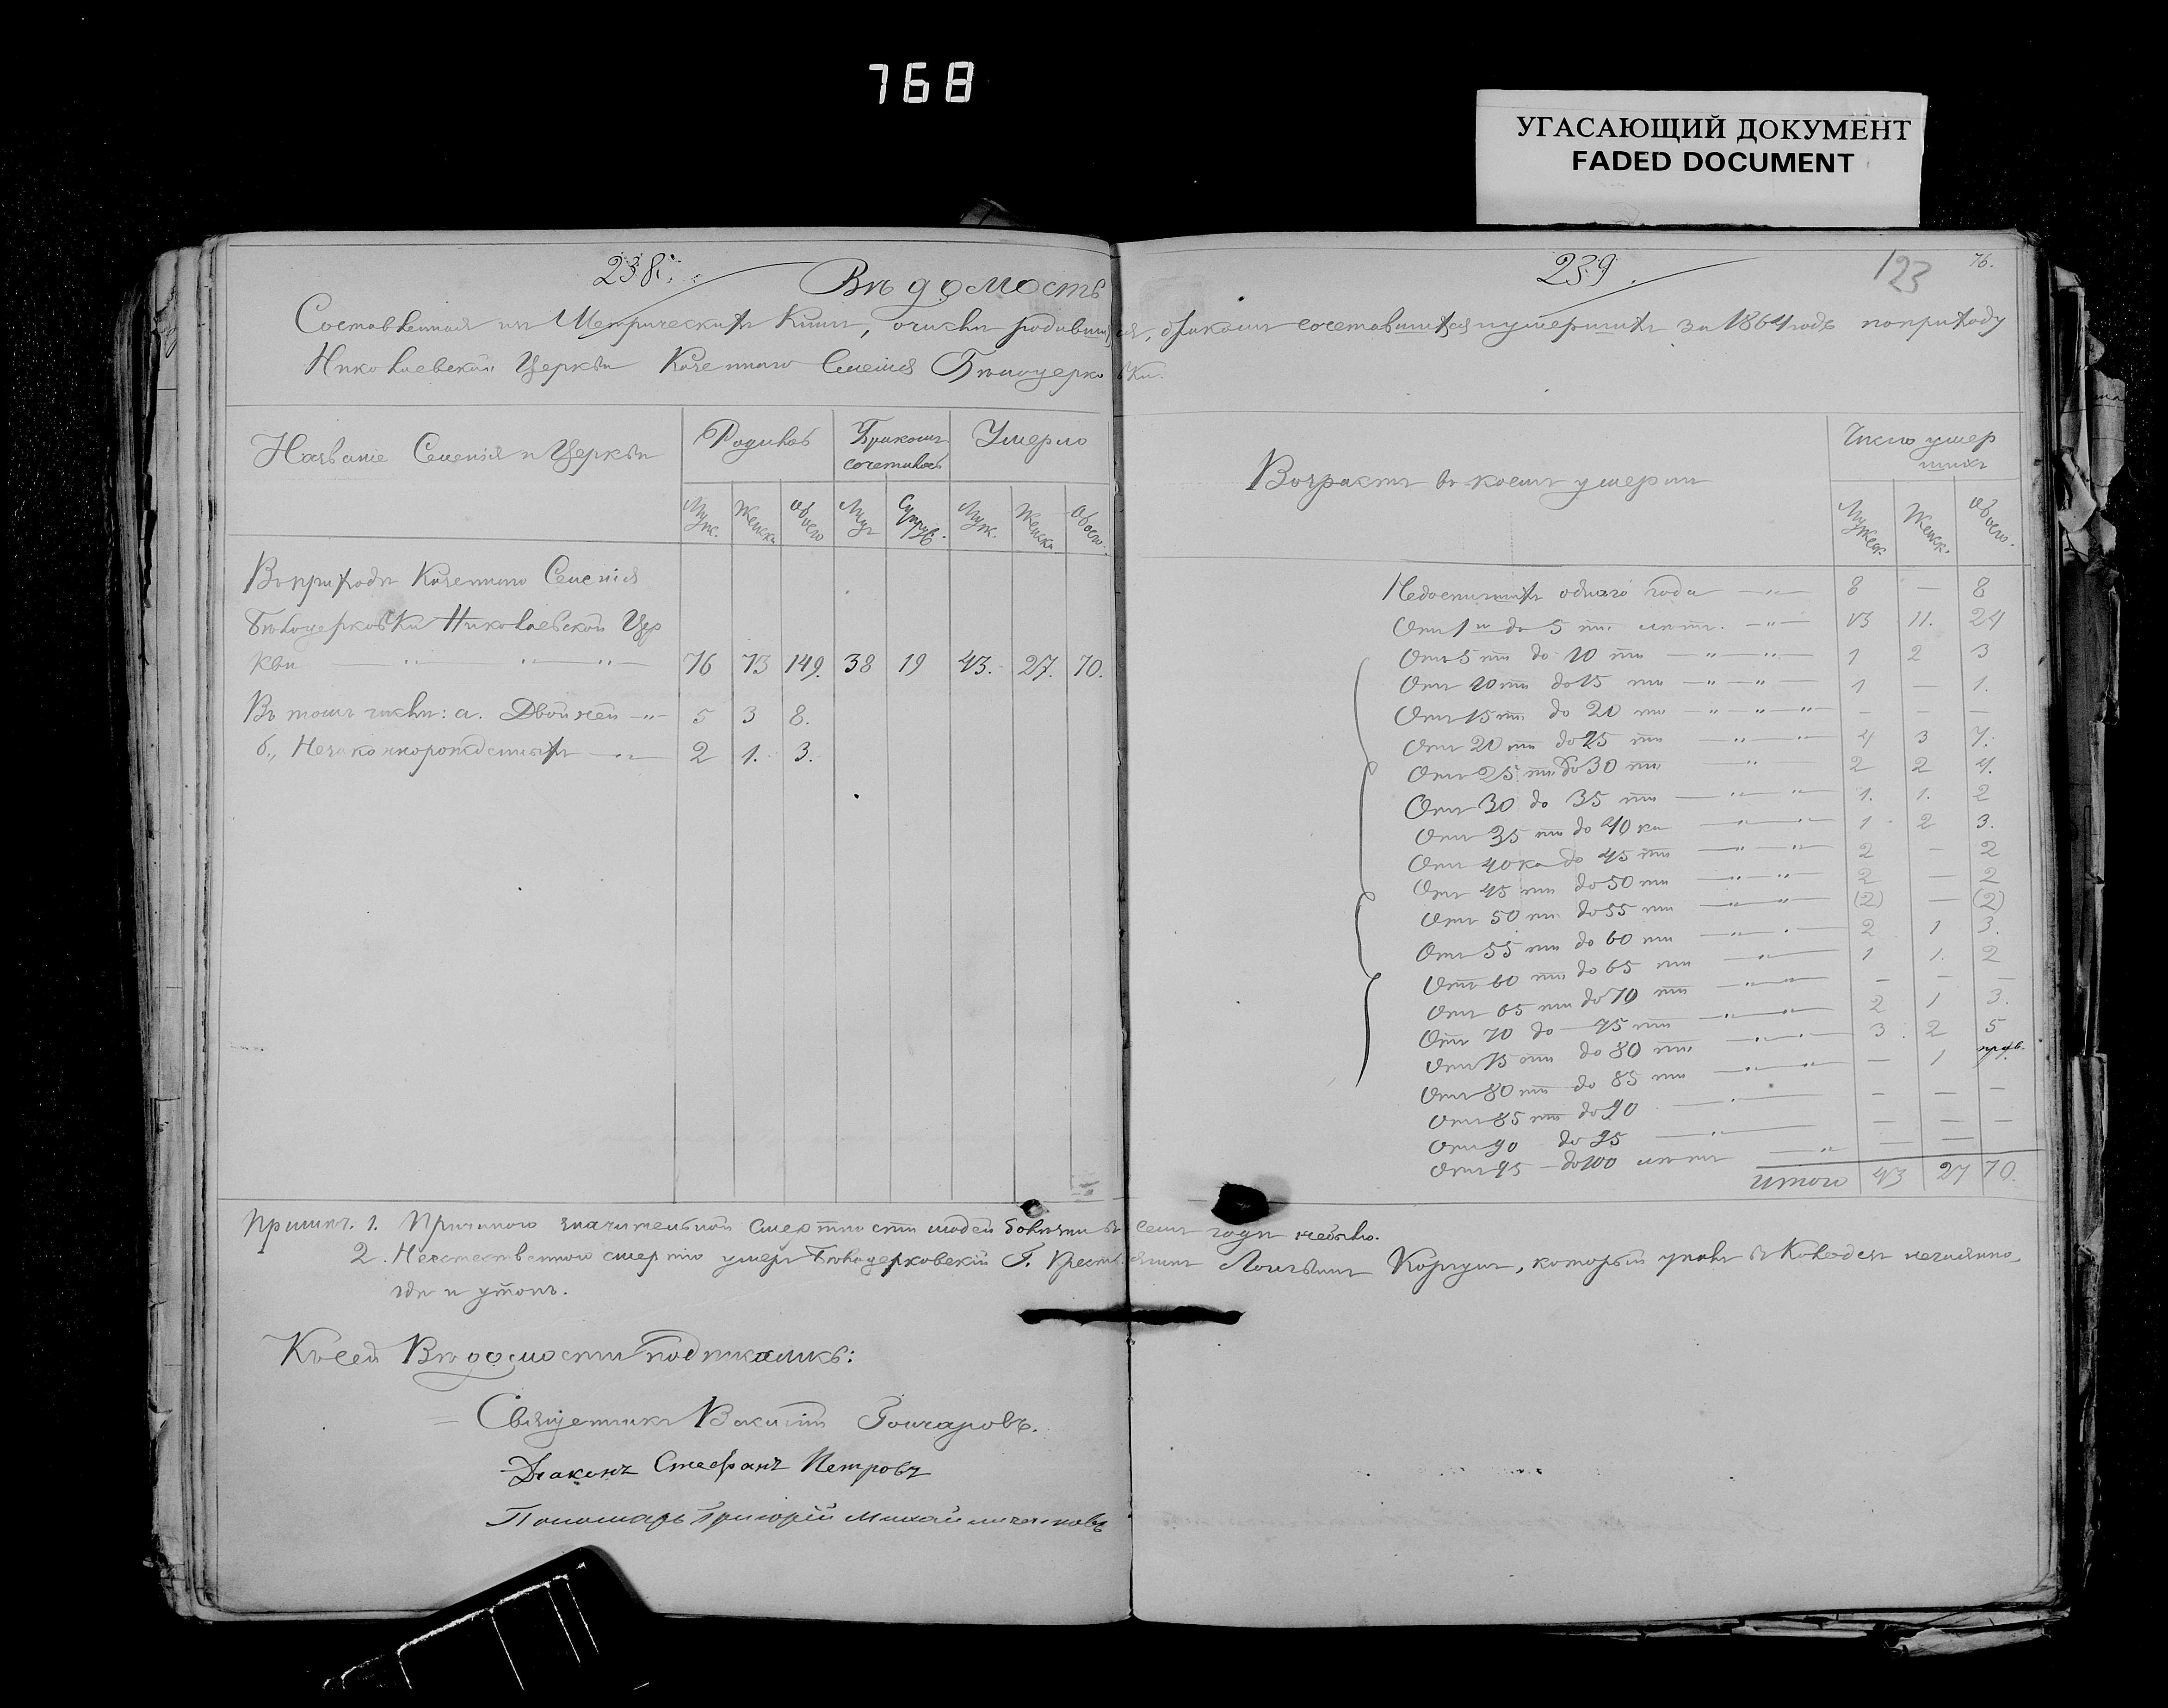 768
УГАСАЮЩИЙ ДОКУМЕНТ
FADED DOCUMENT
238.
Вѣдомость
239.
123
76.
Составленная изъ Метрическихъ Книгъ, о числѣ родившихся, бракомъ сочетавшихся и умершихъ за 1864 годъ по приходу
Николаевской Церкви Казеннаго Селенія Бѣлоцерковки.
Названіе Селенія и Церкви
Родилось
Бракомъ сочеталось
Умерло
Муж. Женска Обоего Муж. Супруг. Муж. Женска Обоего.
Въ приходѣ Казеннаго Селенія
Бѣлоцерковки Николаевской Цер
кви 76 73 149. 38 19 43. 27. 70.
Въ томъ числѣ: а. Двойней 5 3 8.
б., Незаконнорожденныхъ 2 1. 3.
Возрастъ въ коемъ умерли
Число умер
шихъ
Мужеск. Женск. Обоего.
Недостигшихъ однаго года 8 — 8
Отъ 1го до 5 ти лѣтъ. 13 11. 24
Отъ 5 ти до 10 ти 1 2 3
Отъ 10 ти до 15 ти 1 — 1.
Отъ 15 ти до 20 ти — — —
Отъ 20 ти до 25 ти 4 3 7.
Отъ 25 ти до 30 ти 2 2 4.
Отъ 30 до 35 ти 1. 1. 2
Отъ 35 ти до 40 ка 1 2 3.
Отъ 40 ка до 45 ти 2 — 2
Отъ 45 ти до 50 ти 2 — 2
Отъ 50 ти до 55 ти (2) — (2)
Отъ 55 ти до 60 ти 2 1 3.
Отъ 60 ти до 65 ти 1 1. 2
Отъ 65 ти до 70 ти — — —
Отъ 70 до 75 ти 2 1 3.
Отъ 75 ти до 80 ти 3 2 5
Отъ 80 ти до 85 ти — 1
Отъ 85 ти до 90 — — —
Отъ 90 до 95 — — —
Отъ 95 до 100 лѣтъ — —
Итого 43 27 70.
Примѣч. 1. Причиною значительной смертности людей болѣзни въ семъ году небыло.
2. Неестественною смертію умеръ Бѣлоцерковскій Г. Крестьянинъ Логвинъ Коргунъ, который упалъ въ Колодезь нечаянно,
гдѣ и утопъ.
Къ сей Вѣдомости подписались:
Священникъ Гончаровъ.
Діаконъ Стефанъ Петровъ
Пономарь Григорій